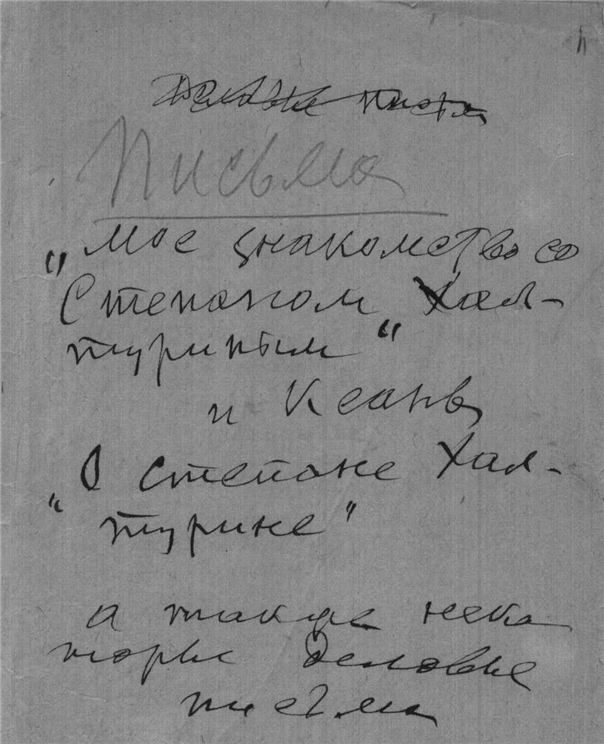 Деловые письма
Письма
„Мое знакомство со
Степаном Хал-
туриным“
и
„О Степане Хал-
турине"
а также неко
торые деловые
письма